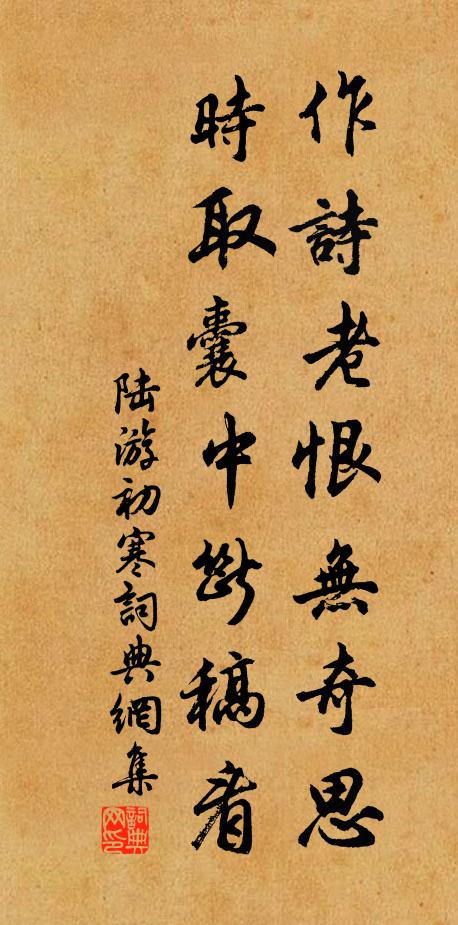 作詩老恨無奇思
時取囊中斷稿看
陆游初寒詞典網集
詞典网印